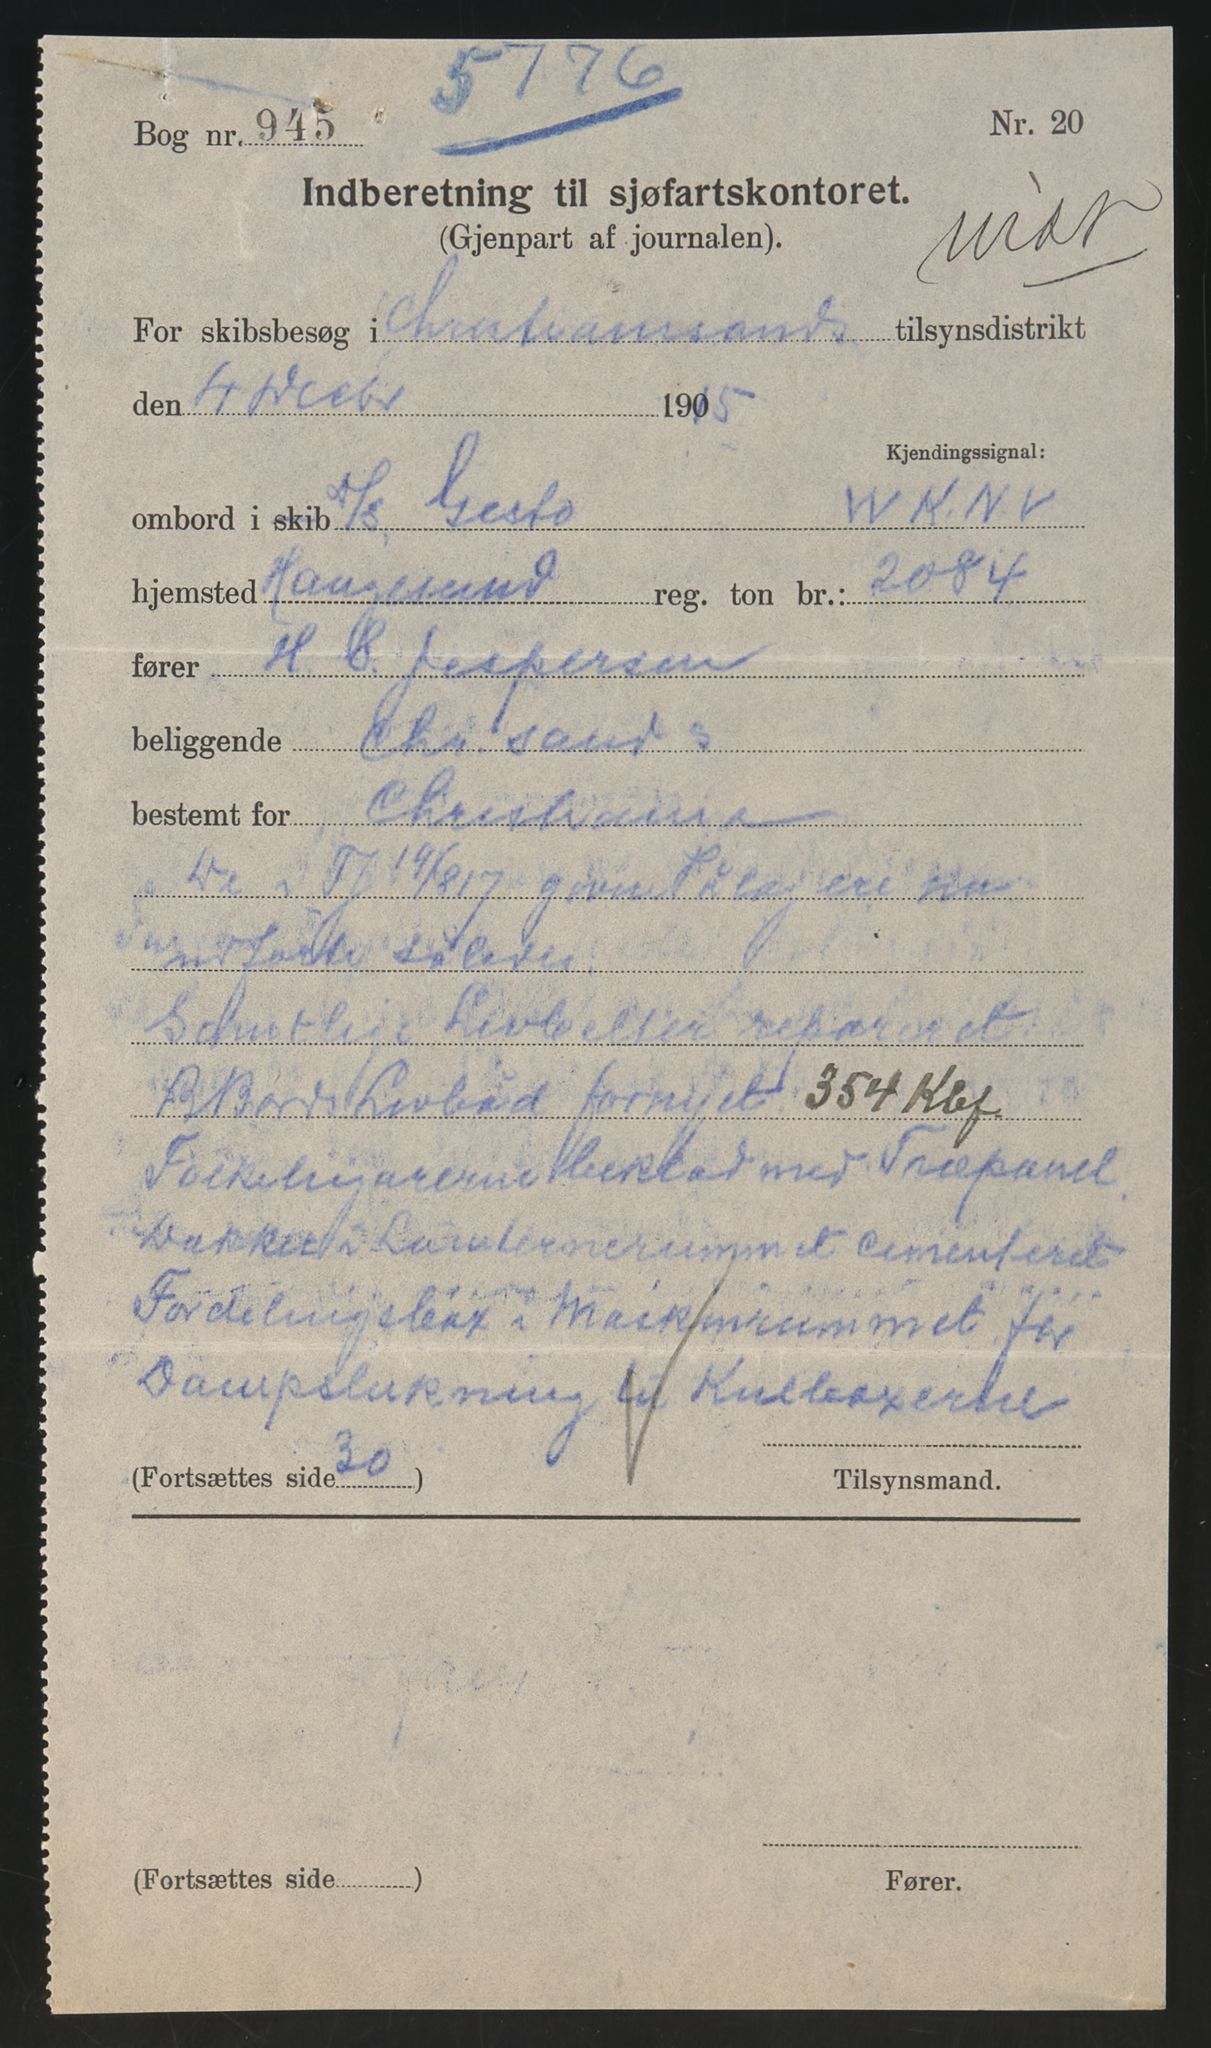 5776
Bog nr. 945
Nr. 20
Indberetning til sjøfartskontoret.
(Gjenpart af journalen).
For skibsbesøg i Christianssands tilsynsdistrikt
den 4 Decbr 1915
Kjendingssignal:
ombord i skib D/S. Gesto W K. N. V
hjemsted Haugesund reg. ton br.: 2084
fører H. C. Jespersen
beliggende Chr. sand S
bestemt for Christiania
De i givne Pålæg ere nu
udførte således
Samtlige Livbelter reparert
B Bords Livbåd fornyet 354 Kbf.
beklæd med Træpanel.
Dækket i Lanternerummet cementeret
Fordelingsbox i Maskinrummet for
Dampslukning til Kulboxerne
(Fortsættes side 30)
Tilsynsmand.
(Fortsættes side )
Fører.